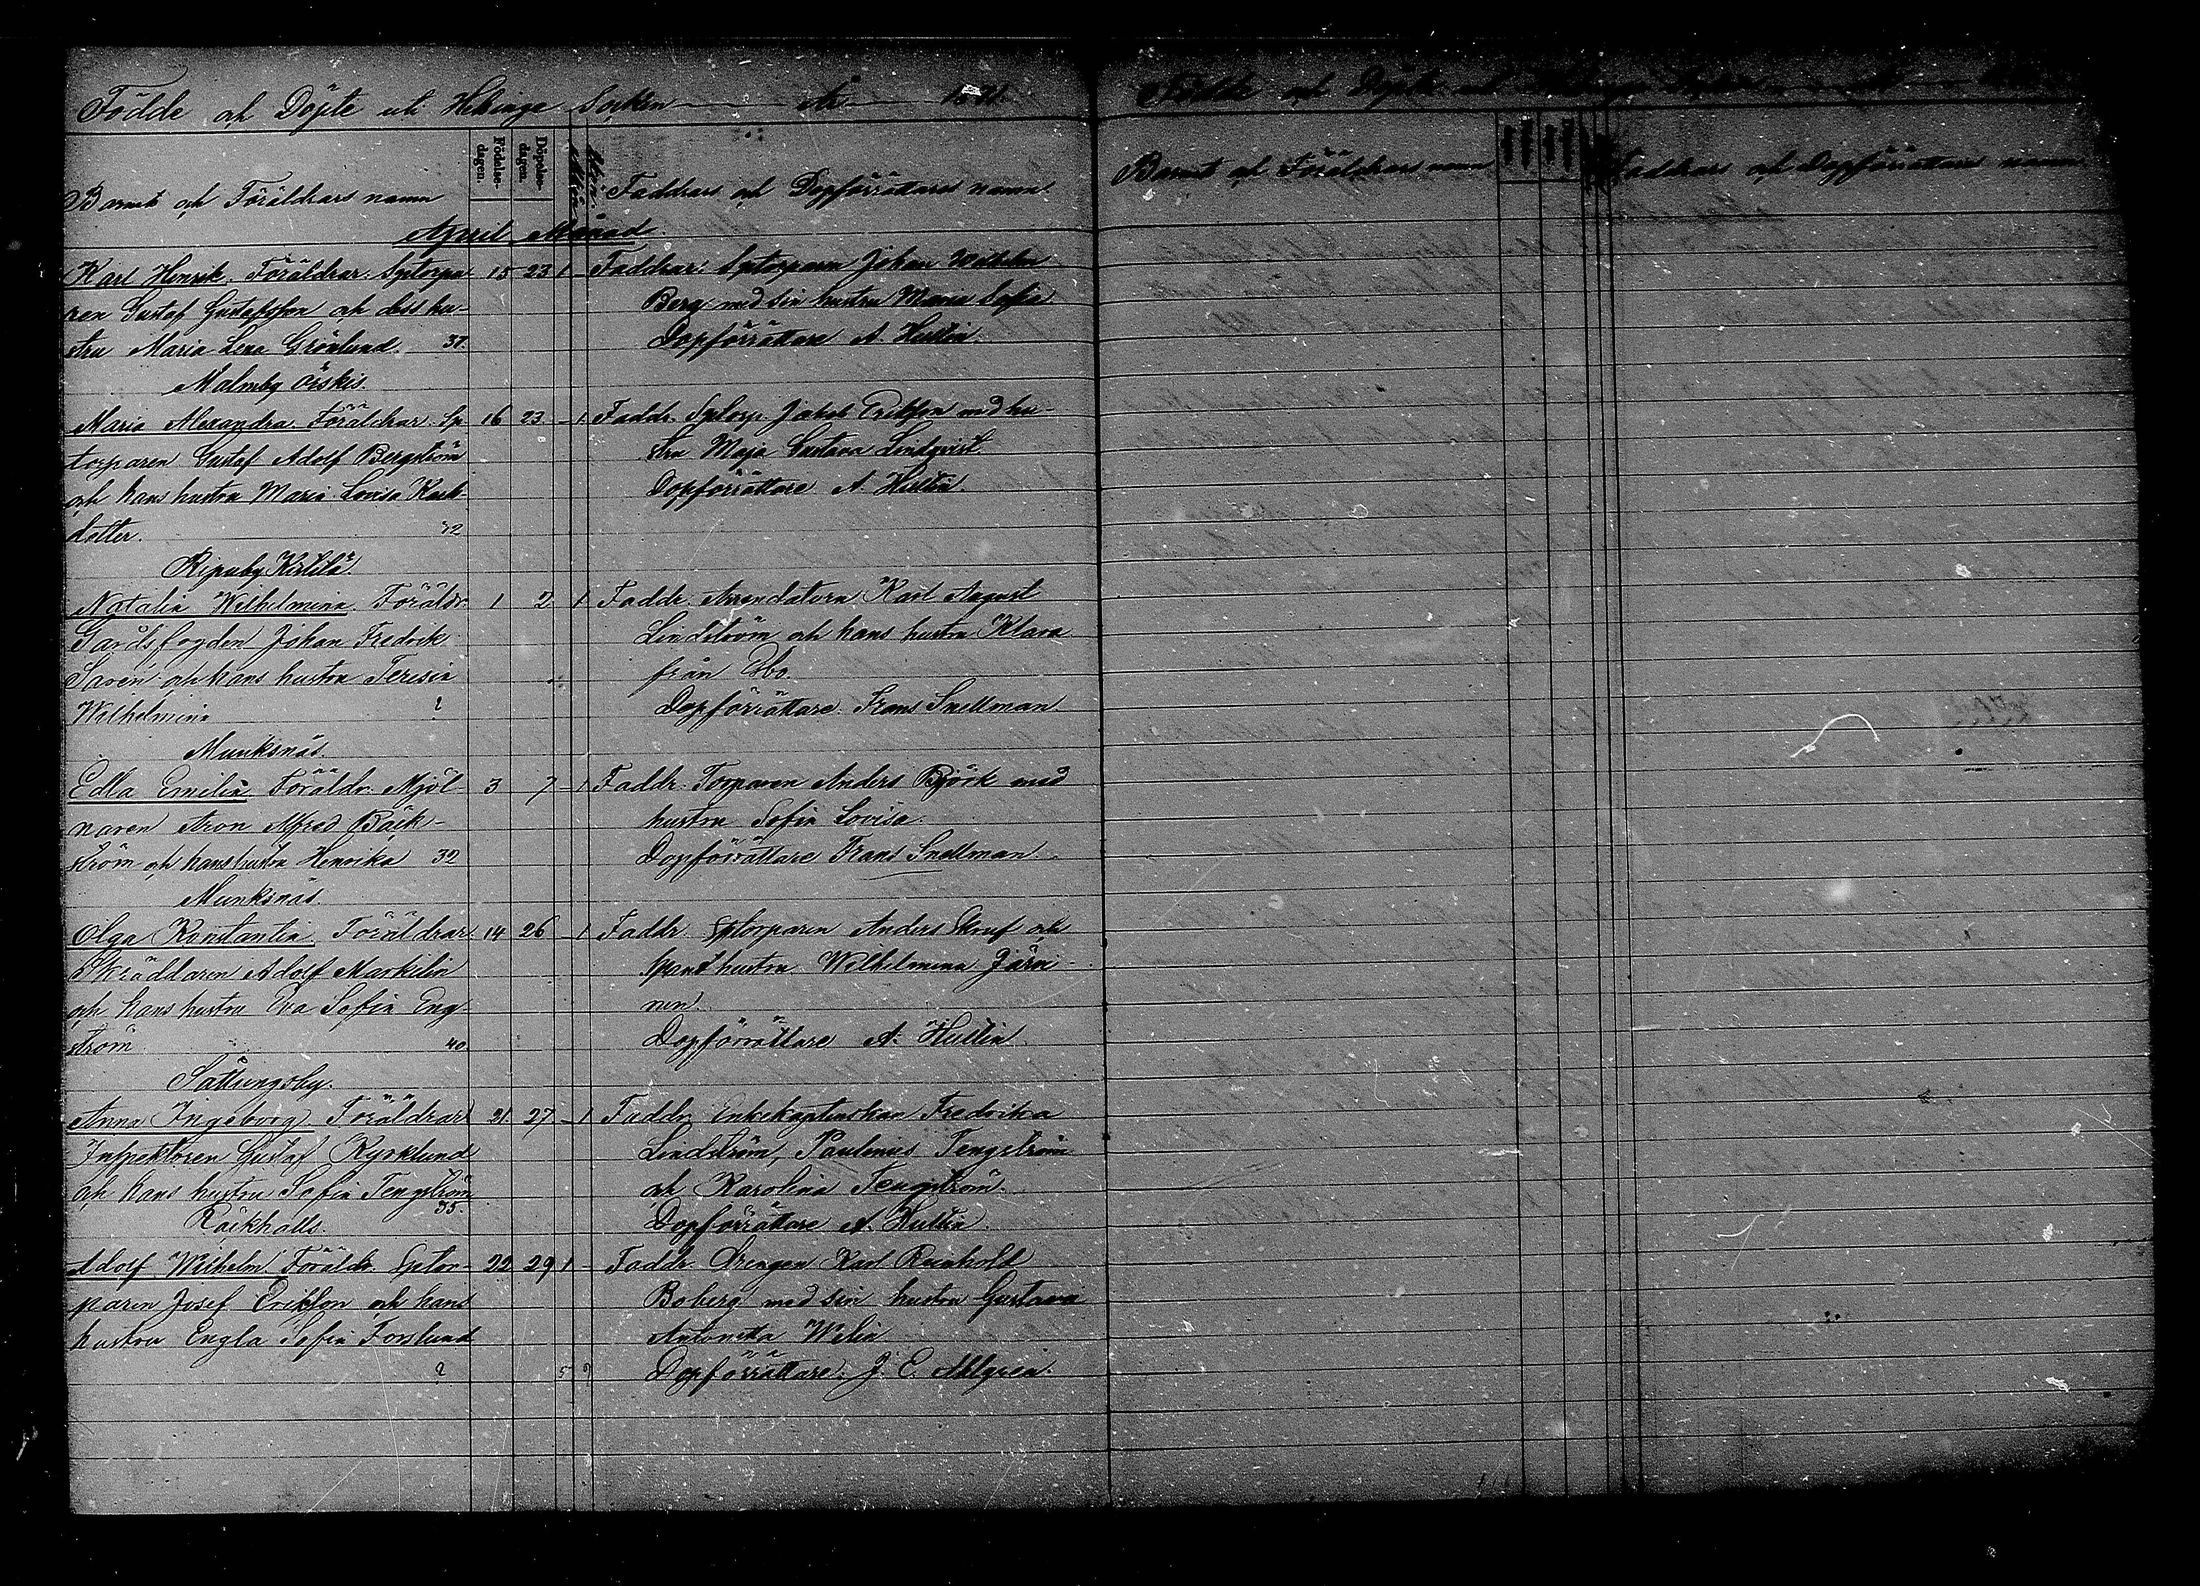 Födde och Döpte uti Helsinge Socken År
Barnets och Föräldrars namn
Födelse-dagen.
Döpelse-dagen.
Faddrars och Dopförrättares namn.
April Månad.
Karl Henrik. Föräldrar: Sptorpa- 15 23 1 – Faddrar: Sptorparen Johan Wilhelm
ren Gustaf Gustafsson och dess hu- Berg med sin hustru Maria Sofia
stru Maria Lena Grönlund. 37. Dopförrättare A. Hultin.
Malmby
Maria Alexandra. Föräldrar. Sp 16 23 – 1 Faddr. Sptorp. Jakob Eriksson med hu-
torparen Gustaf Adolf Bergström stru Maja Gustava Lindqvist.
och hans hustru Maria Lovisa Karls- Dopförrättare A. Hultin.
dotter. 32
Ripuby
Natalia Wilhelmina. Föräldr. 1 2 – 1 Faddr. Arrendatorn Karl August
Gårdsfogden Johan Fredrik Lindström och hans hustru Klara
Savén och hans hustru Teresia från Esbo.
Wilhelmina ? Dopförrättare Frans Snellman.
Munksnäs.
Edla Emilia Föräldr. Mjöl- 3 7 – 1 Faddr. Torparen Anders Björk med
naren Aron Alfred Bäck- hustru Sofia Lovisa.
ström och hans hustru Henrika 32 Dopförrättare Frans Snellman.
Munksnäs.
Olga Konstantia. Föräldrar 14 26 – 1 Faddr. Sptorparen Anders Skruf och
Skräddaren Adolf Markelin hustru Wilhelmina Järvi-
och hans hustru Eva Sofia Eng- nen.
ström 40. Dopförrättare A. Hultin.
Sottungsby.
Anna Ingeborg. Föräldrar 21. 27. – 1 Faddr. Enkekaptenskan Fredrika
Inspektoren Gustaf Kyrklund Lindström, Paulinus Tengström
och hans hustru Sofia Tengström 35. och Karolina Tengström.
Räckhalls. Dopförrättare A. Hultin.
Adolf Wilhelm. Föräldr. Sptor- 22 29 1 – Faddr. Drengen Karl Reinhold
paren Josef Eriksson och hans Boberg med sin hustru Gustava
hustru Engla Sofia Forslund Antonetta
? 5 9 Dopförrättare: J. E. Ahlgren.
Födde och Döpte uti
Barnets och Föräldrars namn
Faddrars och Dopförrättares namn